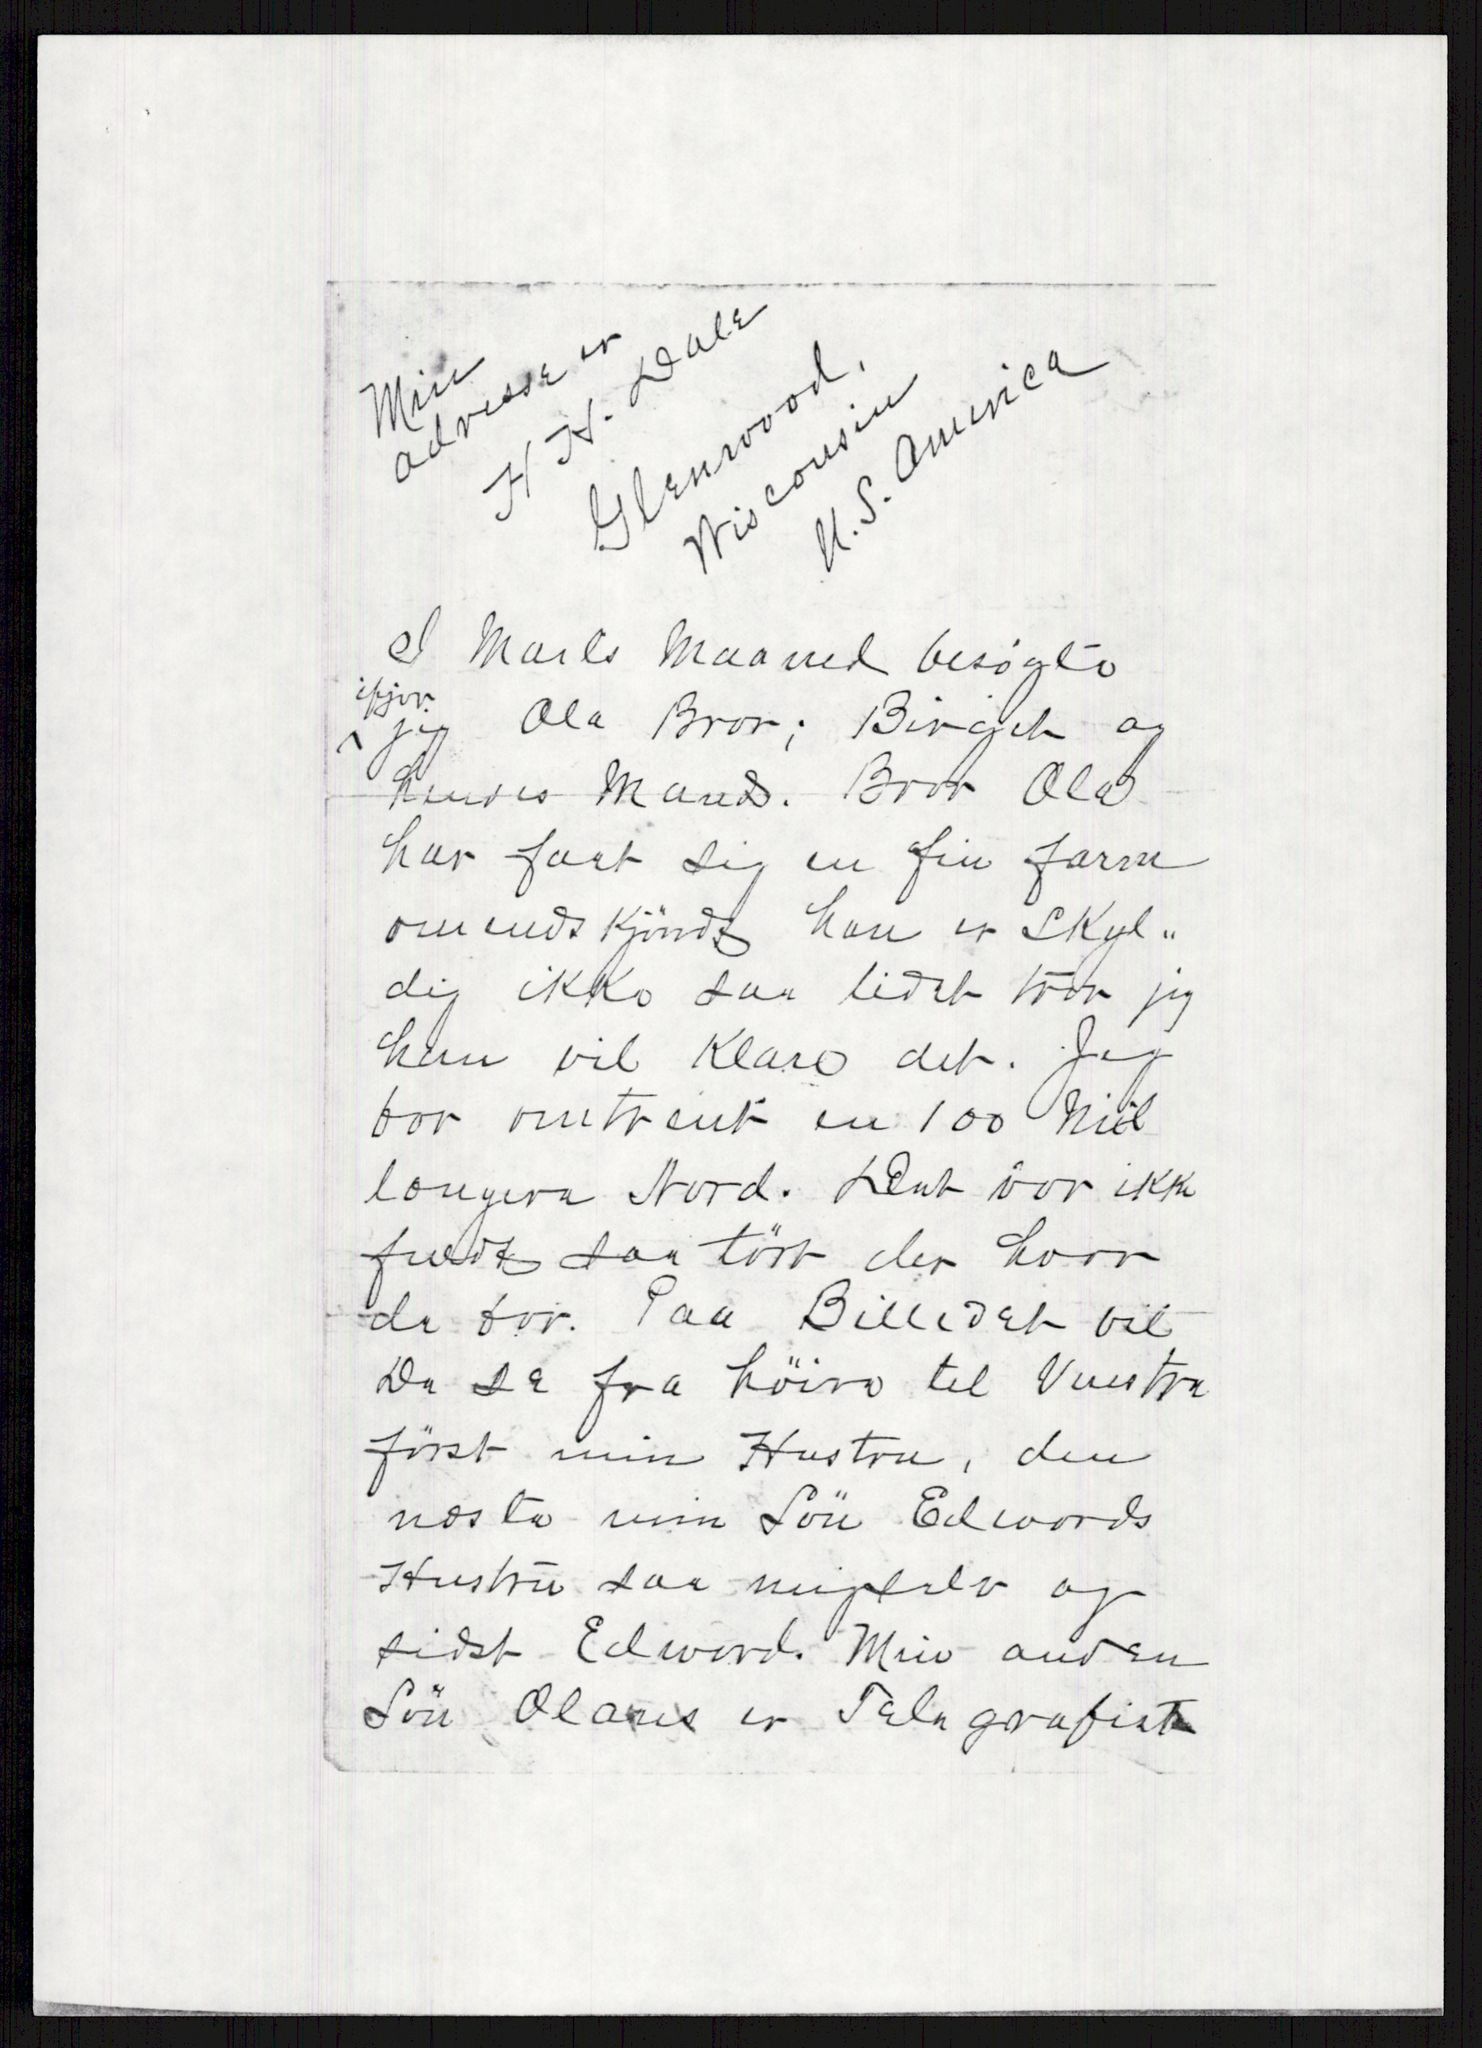 Min
adresse er
H H. Dale
Glenwood,
Wisconsin
U. S. America
I Marts Maaned besögte
ifjor
jeg Ola Bror; Birgit og
hendes Mand. Bror Ola
har faat sig en fin farm
omendskjöndt han er Skyl"
dig ikke saa lidet tror jeg
han vil klare det. Jeg
bor omtrent en 100 Miil
længere Nord. Det var ikke
fuldt saa tört der hvor
de bor. Paa Billedet vil
Du se fra höire til Venstre
först min Hustru, den
næste min Sön Edwards
Hustru saa migselv og
sidst Edward. Min anden
Sön Olaus er Telegrafist